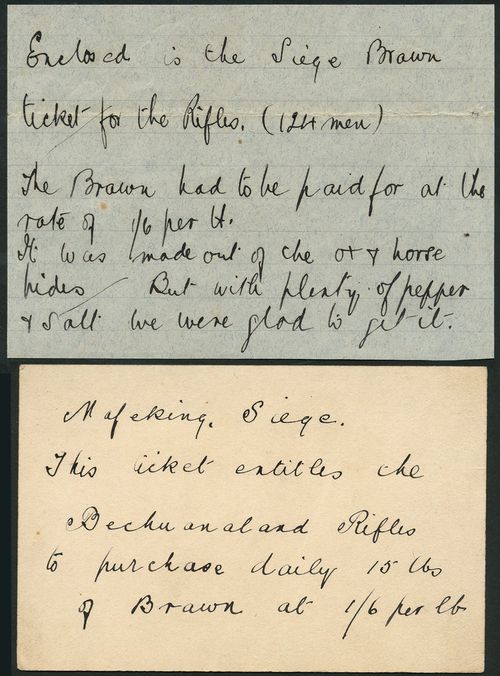 Enclosed is the Siege Brawn
ticket for the Rifles. (124 men)
The Brawn had to be paid for at the
rate of 1/6 per lt.
It was made out of the ox & horse
hides But with plenty of pepper
& Salt we were glad to get it.
Mafeking. Siege.
This ticket entitles the
Bechuanaland Rifles
to purchase daily 15 lbs
of Brawn at 1/6 per lb